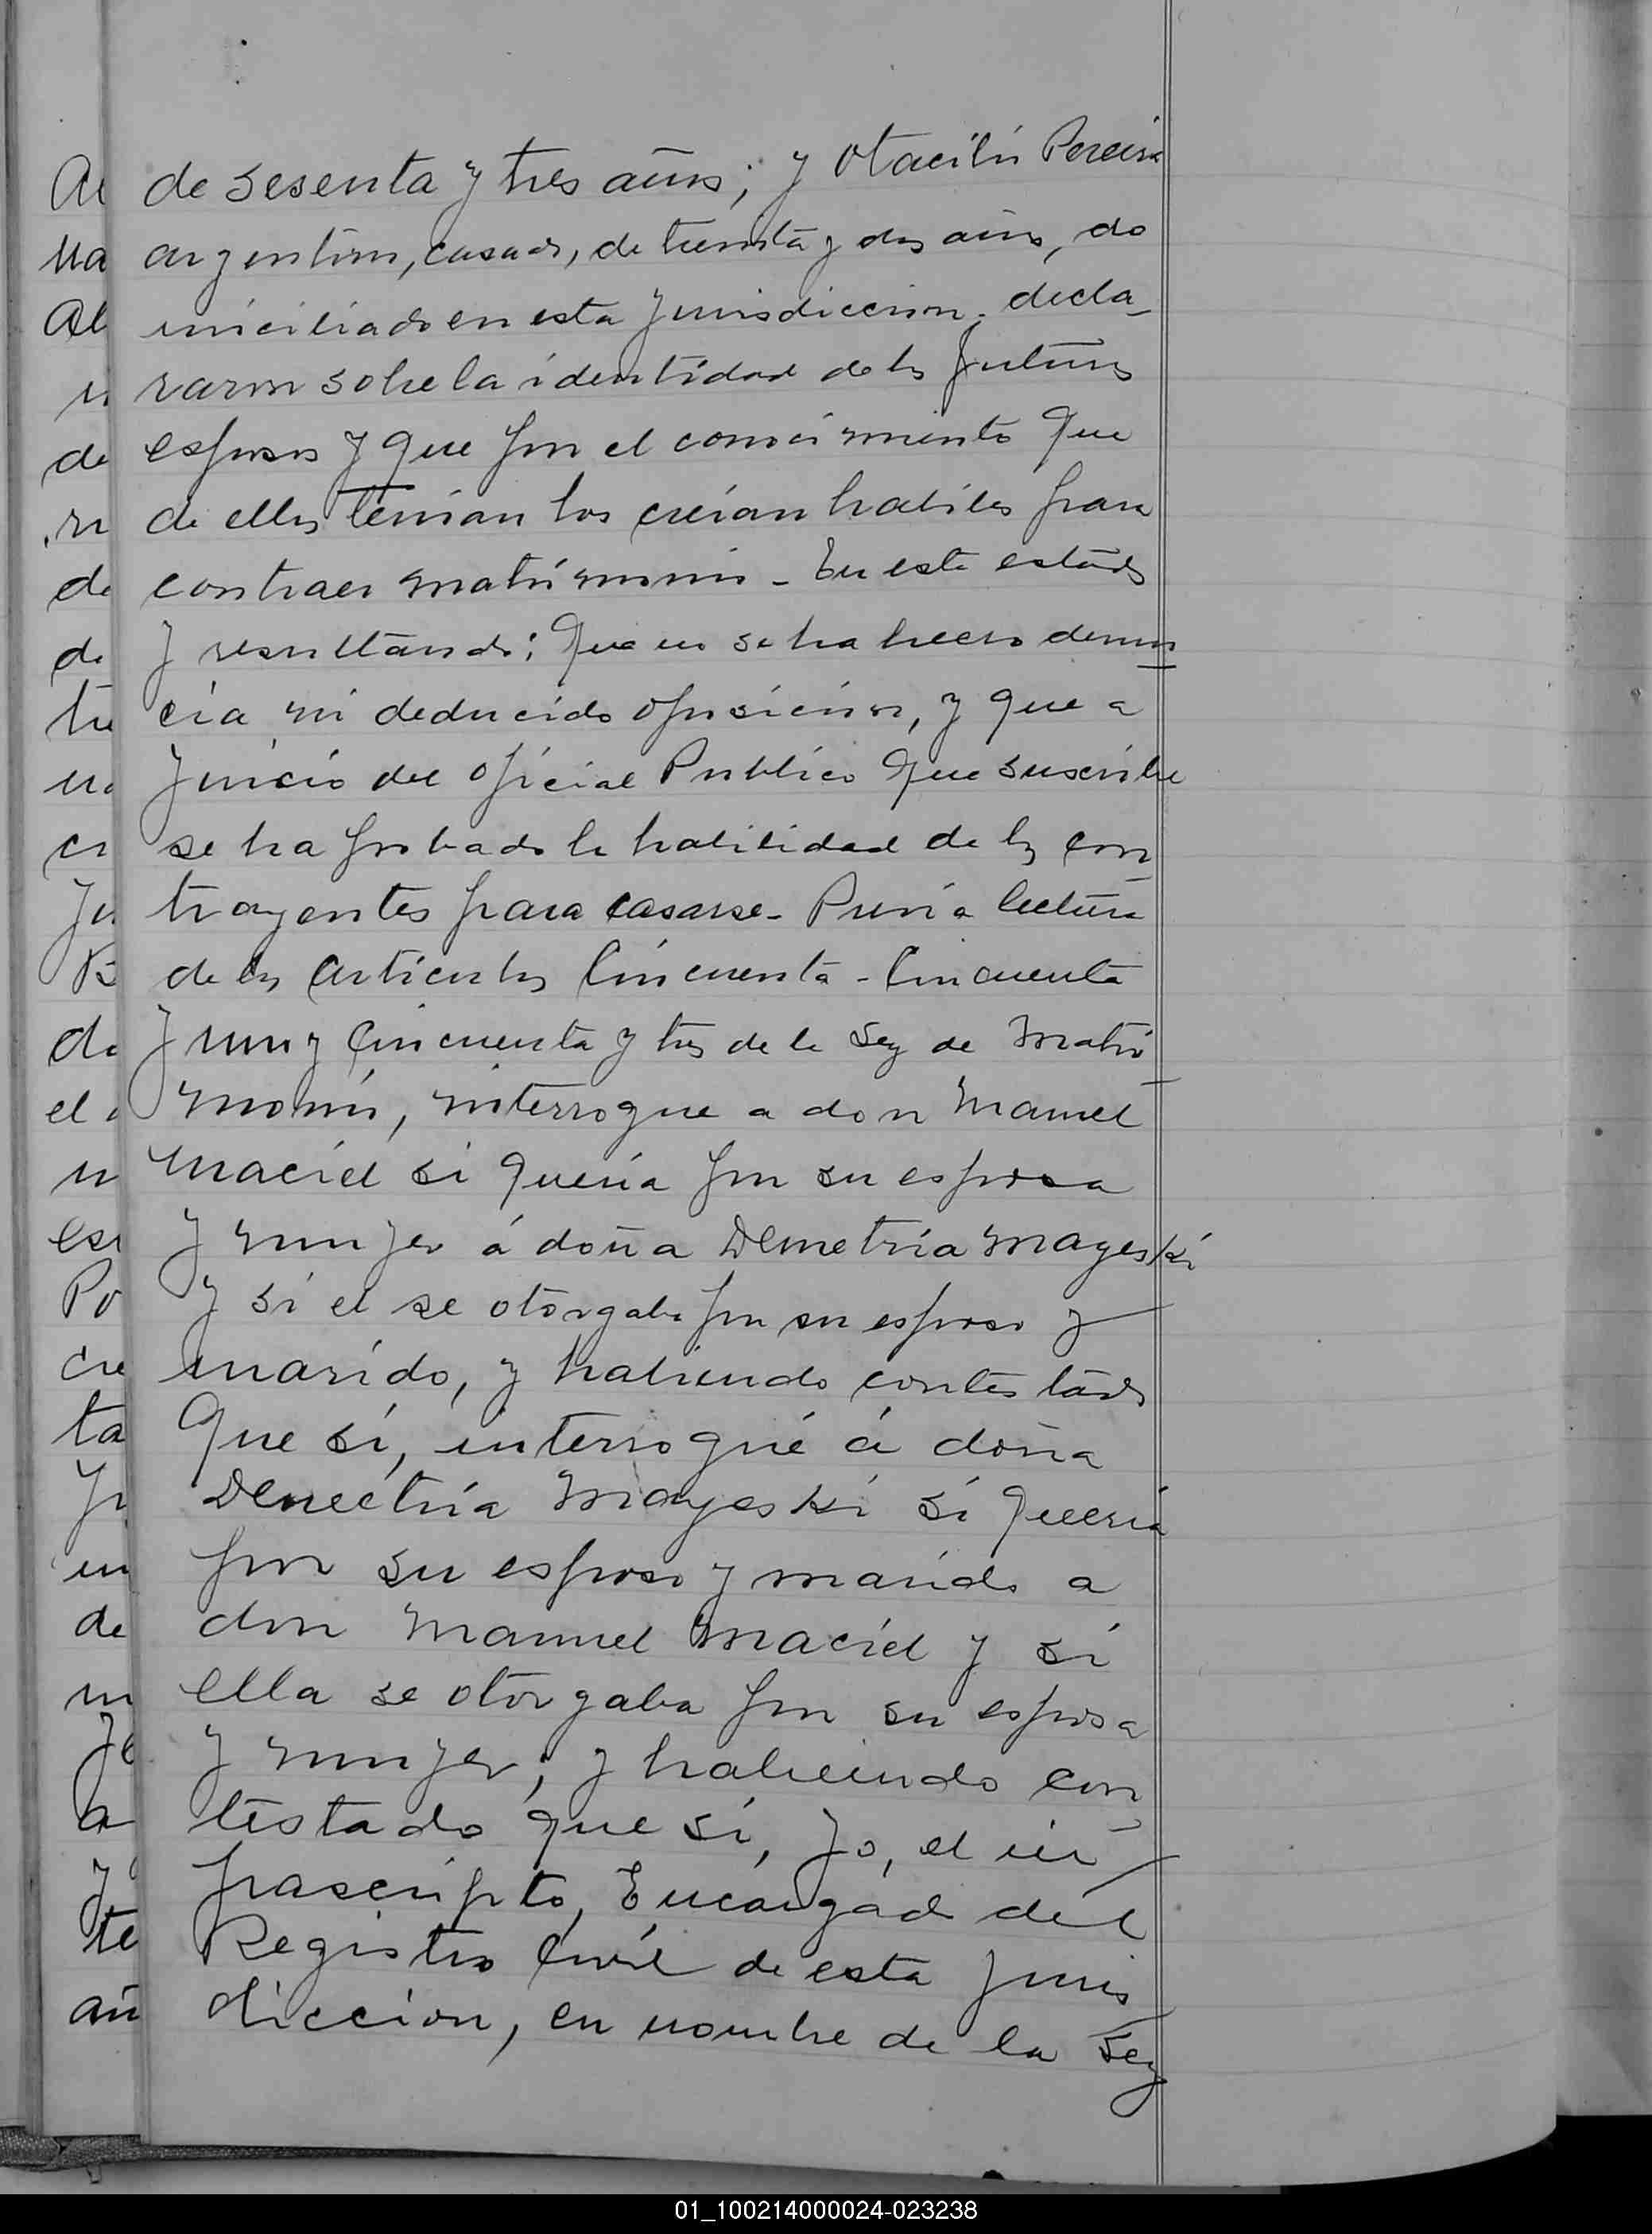 de sesenta y tres años; y Otacilio Pereira
argentino, casado, de treinta y dos años, do
miciliado en esta Jurisdiccion, decla-
raron sobre la identidad de los futuros
esposos y que por el conocimiento que
de ellos tenian los creían habiles para
contraer matrimonio - En este estado
y resultando: Que no se ha hecho denun
cia ni deducido oposicion, y que a
Juicio del Oficial Publico que suscribe
se ha probado la habilidad de los con
trayentes para casarse - Previa lectura
de los Articulos Cincuenta - Cincuenta
y uno y Cincuenta y tres de la Ley de Matri
monio, interrogue a don Manuel
Maciel si quería por su esposa
y mujer á doña Demetria Mayeski
y si el se otorgaba por su esposo y
marido, y habiendo contestado
Que sí, interrogué á doña
Demetria Mayeski si quería
por su esposo y marido a
don Manuel Maciel y si
ella se otorgaba por su esposa
y mujer; y habiendo con
testado que sí, Yo, el in
frascripto, Encargado del
Registro Civil de esta Juris
diccion, en nombre de la Ley
01_100214000024-023238